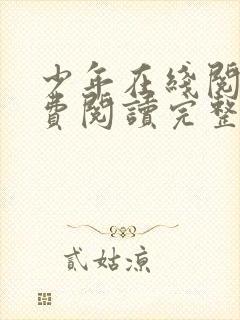 少年在綫閱
費閱讀完整
貳姑涼